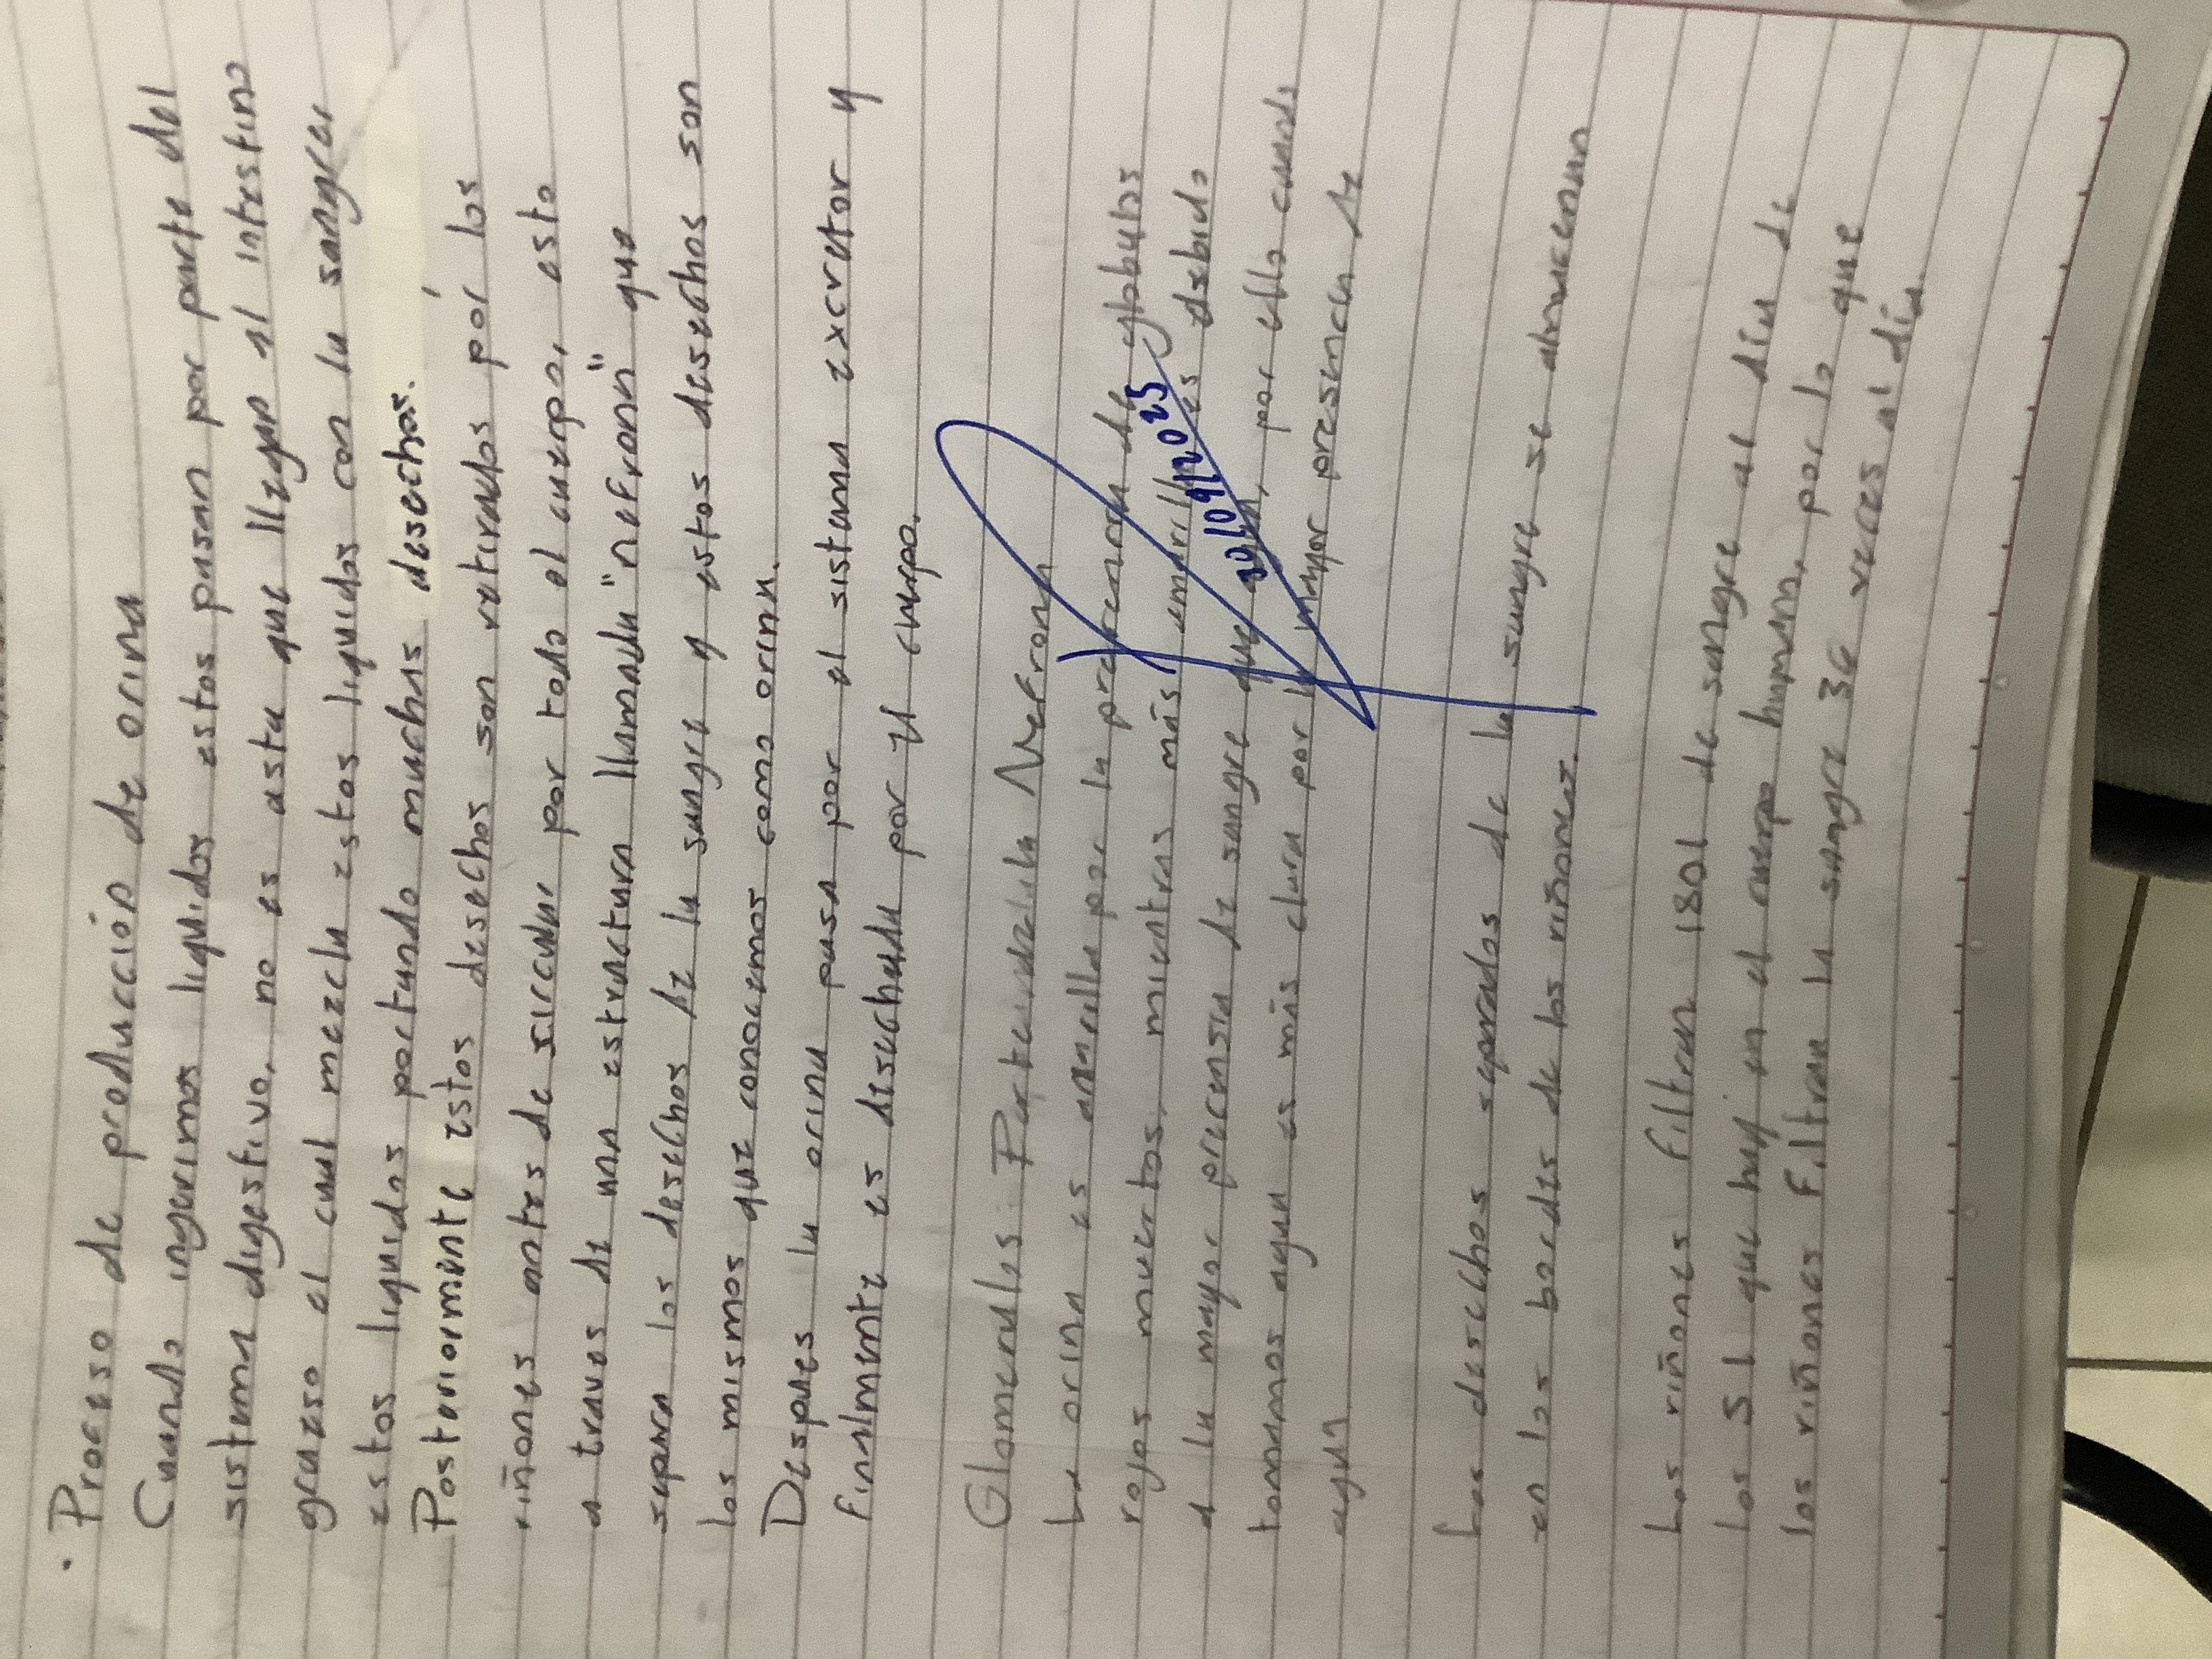 · Proceso de producción de orina
Cuando ingerimos liquidos estos pasan por parte del
sistema digestivo, no es asta que llegan al intestino
grueso el cual mezcla estos liquidos con la sangre,
estos liquidos portando muchas desechos.
Posteriormente estos desechos son retirados por los
riñones antes de sircular por todo el cuerpo, esto
a traves de una estructura llamada "nefrona" que
separa los desechos de la sangre y estos desechos son
los mismos que conocemos como orina.
Despues la orina pasa por el sistema excretor y
finalmente es desechada por el cuerpo.
Glomerulos: Parte de la Nefrona
La orina es amarilla por la precencia de globulos
rojos muertos, mientras más amarilla es debido
a la mayor precensia de sangre que agua, por ello cuando
tomamos agua es más clara por la mayor presencia de
agua
30/09/2025
Los desechos separados de la sangre se almacenan
en los bordes de los riñones.
Los riñones filtran 180 l de sangre al día de
los 5 l que hay en el cuerpo humano, por lo que
los riñones filtran la sangre 36 veces al día.